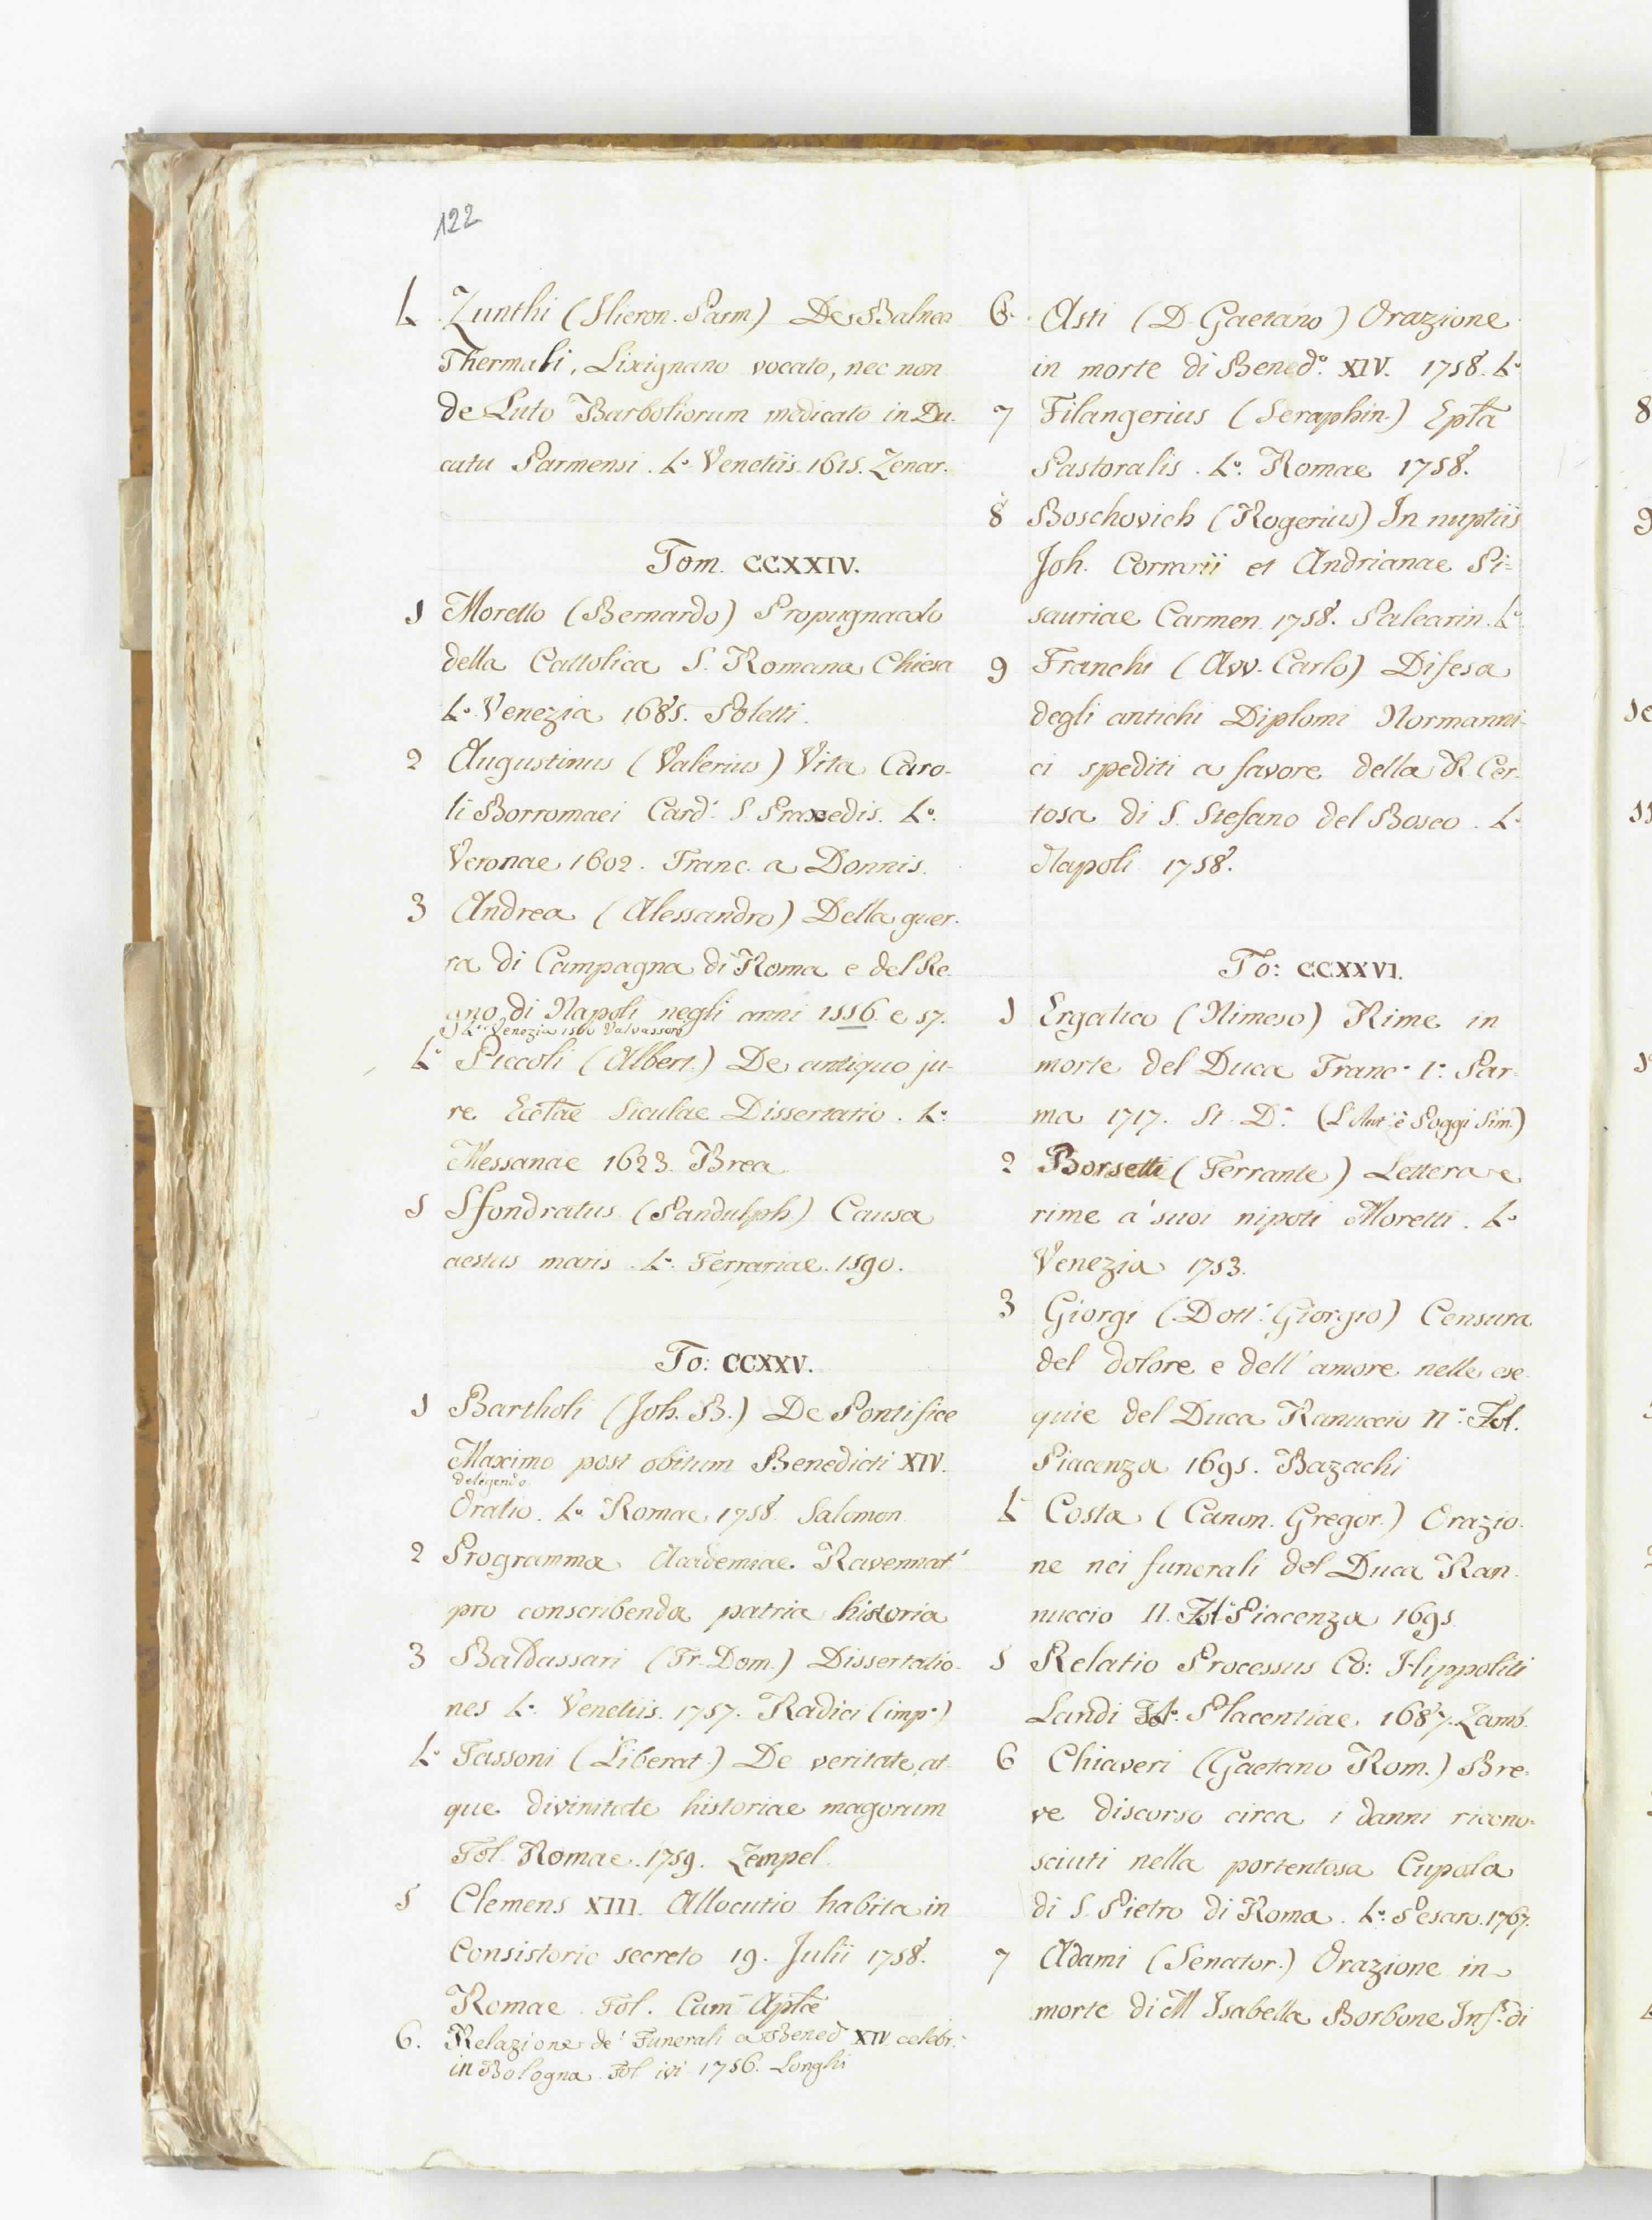 122
4 Zunthi (Hieron. Parm.) De Balneo
Thermali, Lixignano vocato, nec non
de Luto Barboliorum medicato in Du-
catu Parmensi. 4º Venetiis. 1615. Zenar.
Tom. CCXXIV.
1 Morello (Bernardo) Propugnacolo
della Cattolica S. Romana Chiesa
4º Venezia 1685. Poletti.
2 Augustinus (Valerius) Vita Caro-
li Borromaei Card. S. Praxedis. 4º.
Veronae 1602. Franc. a Donnis.
3 Andrea (Alessandro) Della guer-
ra di Campagna di Roma e del Re-
gno di Napoli negli anni 1556. e 57.
4º Venezia 1560 Valvassori
4º Piccoli (Albert.) De antiquo ju-
re Ecclae Siculae Dissertatio. 4º.
Messanae 1623. Brea
5 Sfondratus (Pandulph.) Causa
aestus maris. 4º. Ferrariae. 1590.
To: CCXXV.
1 Bartholi (Joh. B.) De Pontifice
Maximo post obitum Benedicti XIV.
deligendo
Oratio. 4º Romae 1758. Salomon.
2 Programma Academiae Ravennat.
pro conscribenda patria historia
3 Baldassari (Fr. Dom.) Dissertatio-
nes 4º. Venetiis. 1757. Radici (imp.º)
4º Tassoni (Liberat.) De veritate at-
que divinitate historiae magorum
Fol. Romae. 1759. Zempel.
5 Clemens XIII. Allocutio habita in
Consistorio secreto 19. Julii 1758.
Romae. Fol. Cam. Aplae
6. Relazione de' Funerali a Bened. XIV. celebr.
in Bologna. Fol. ivi 1756. Longhi
6. Asti (D. Gaetano) Orazione
in morte di Bened.º XIV. 1758. 4º
7 Filangerius (Seraphin.) Epla
Pastoralis. 4º. Romae 1758.
8 Boschovich (Rogerius) In nuptiis
Joh. Corrarii et Andrianae Pi-
sauriae Carmen. 1758. Palearin. 4º
9 Franchi (Avv. Carlo) Difesa
degli antichi Diplomi Normanni-
ci spediti a favore della R. Cer-
tosa di S. Stefano del Bosco. 4º
Napoli 1758.
To: CCXXVI.
1 Ergatico (Nimeso) Rime in
morte del Duca Franc.º I.º Par-
ma 1717. St. D. (L'Aut. è Poggi Sim.)
2 Borsetti (Ferrante) Lettera e
rime a' suoi nipoti Moretti. 4º
Venezia 1753.
3 Giorgi (Dott. Giorgio) Censura
del dolore e dell'amore nelle ese-
quie del Duca Ranuccio II.º Fol.
Piacenza 1695. Bazachi
4º Costa (Canon. Gregor.) Orazio-
ne nei funerali del Duca Ran-
nuccio II. Fol. Piacenza 1695
5 Relatio Processus Co: Hippoliti
Landi Fol. Placentiae. 1687. Zamb.
6 Chiaveri (Gaetano Rom.) Bre-
ve discorso circa i danni ricono-
sciuti nella portentosa Cupola
di S. Pietro di Roma. 4º. Pesaro. 1767.
7 Adami (Senator.) Orazione in
morte di M. Isabella Borbone Inf. di